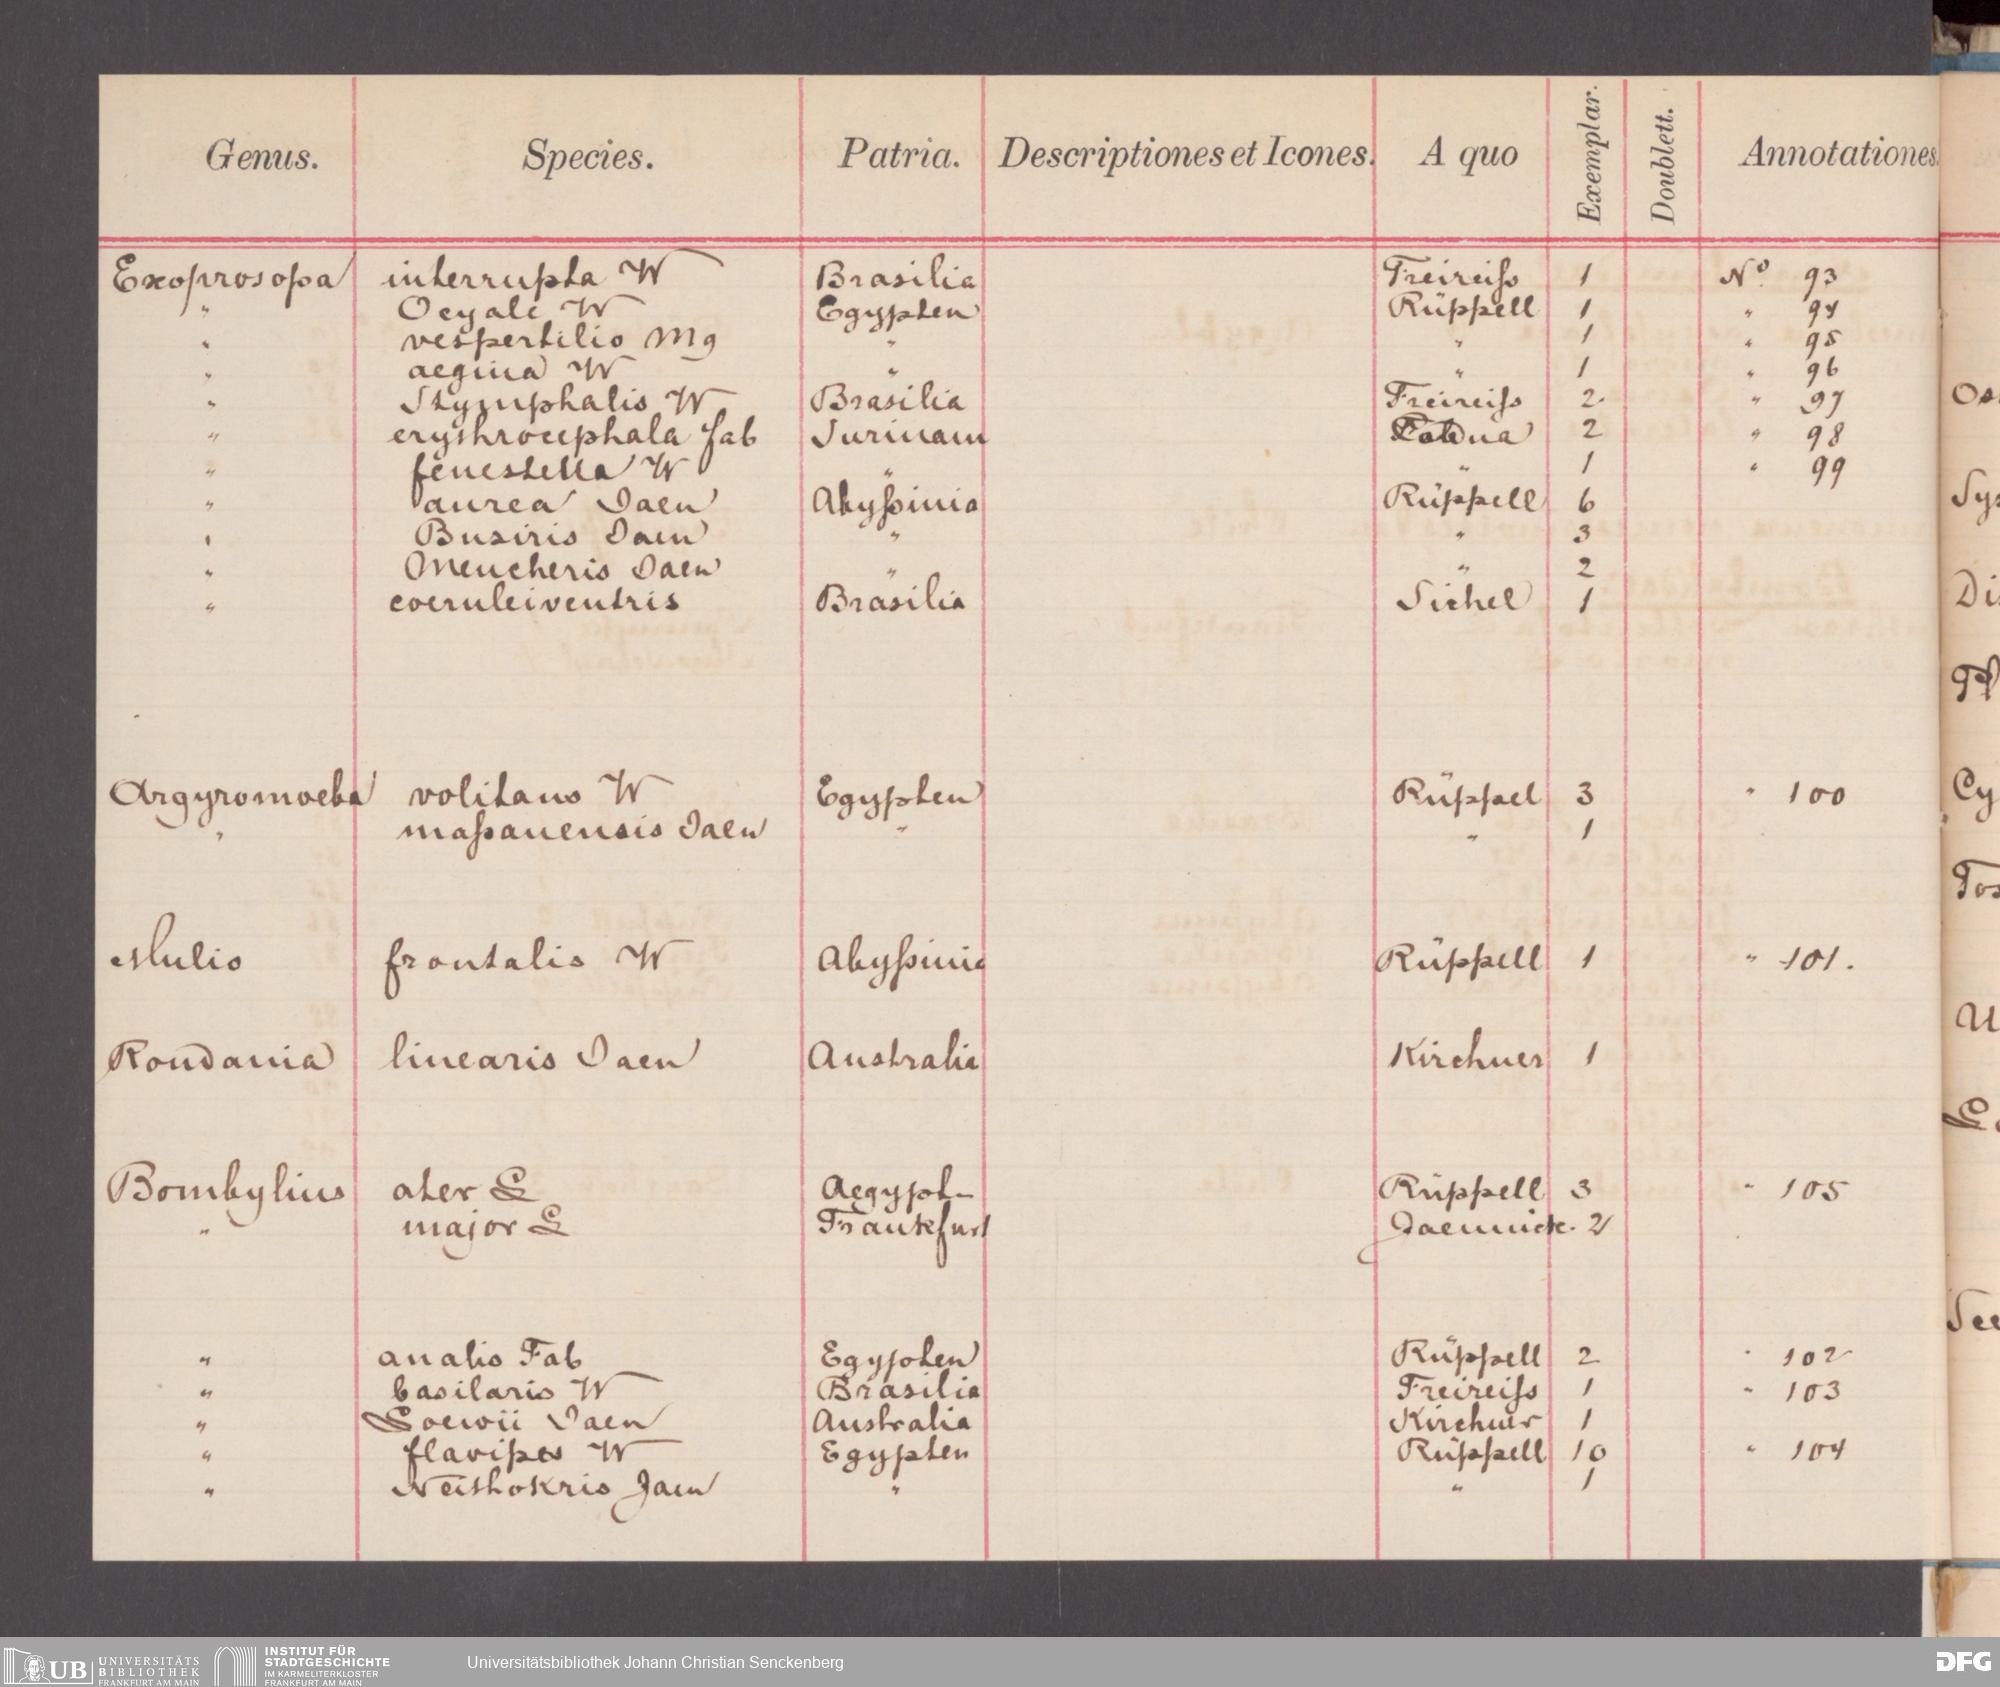 Genus. Species. Patria. Descriptiones et Icones. A quo Exemplar. Doublett. Annotationes.
Exoprosopa interrupta W Brasilia Freireiſs 1 No. 93
" Ocyale W Egypten Rüppell 1 " 94
" vespertilio Mg " " 1 " 95
" aegina W " " 1 " 96
" Stymphalis W Brasilia Freireiſs 2 " 97
" erythrocephala Fab Surinam 2 " 98
" fenestella W " " 1 " 99
" aurea Jaen Abyſsinia Rüppell 6
" Busiris Jaen " " 3
" Meucheris Jaen " " 2
" coeruleiventris Brasilia Sichel 1
Argyromoeba volitans W Egypten Rüppel 3 " 100
" maſsauensis Jaen " " 1
Mulio frontalis W Abyſsinia Rüppell 1 " 101.
Rondania linearis Jaen Australia Kirchner 1
Bombylius ater L Aegypt Rüppell 3 " 105
" major L Frankfurt Jaennick. 2
" analis Fab Egypten Rüppell 2 " 102
" basilaris W Brasilia Freireiſs 1 " 103
" Loewii Jaen Australia Kirchner 1
" flavipes W Egypten Rüppell 10 " 104
" Neithokris Jaen " " 1
UB UNIVERSITÄTS
BIBLIOTHEK
FRANKFURT AM MAIN
INSTITUT FÜR
STADTGESCHICHTE
IM KARMELITERKLOSTER
FRANKFURT AM MAIN
Universitätsbibliothek Johann Christian Senckenberg
DFG